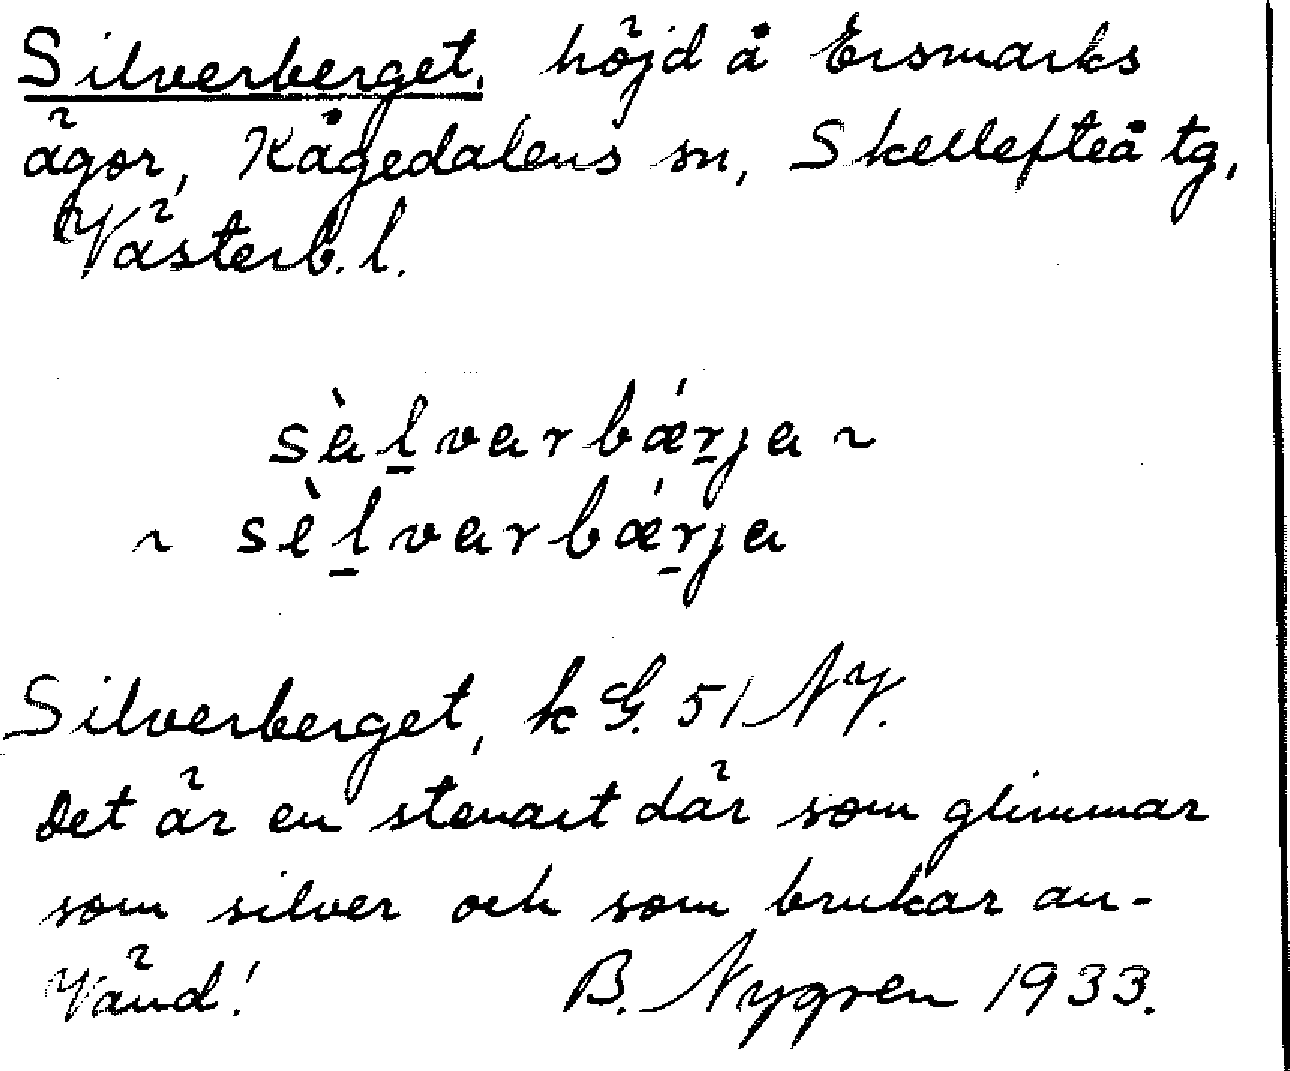 Silverberget, höjd å Ersmarks
ägor, Kågedalens sn, Skellefteå tg,
Västerb. l.
sàl̲varbǽr̲ja ~
~ sèl̲varbǽr̲ja
Silverberget, k G. 51 NY.
Det är en stenart där som glimmar
som silver och som brukar an-
Vänd! B. Nygren 1933.